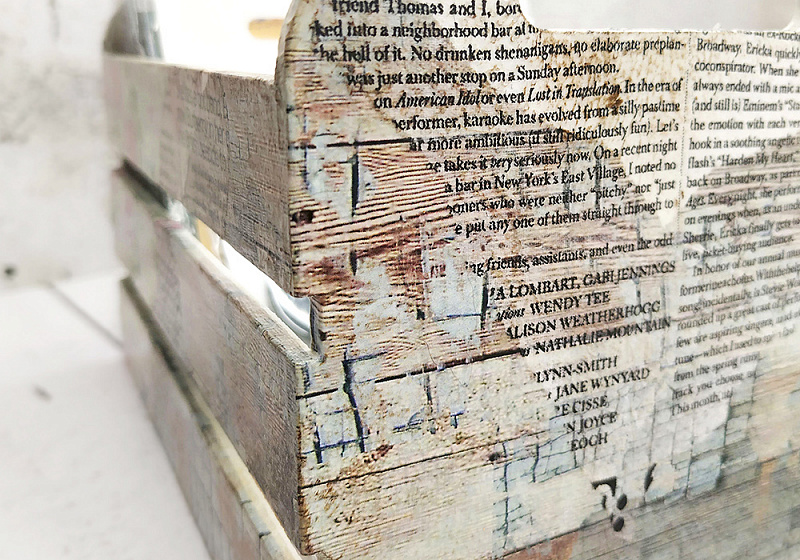 friend Thomas and I, bor
ked into a neighborhood bar at
the hell of it. No drunken shenanigans, no elaborate preplan-
was just another stop on a Sunday afternoon.
on American Idol or even Lost in Translation. In the era of
performer, karaoke has evolved from a silly pastime
ar more ambitious (if still ridiculously fun). Let's
e takes it very seriously now. On a recent night
a bar in New York's East Village, I noted no
ooners who were neither "pitchy" nor "just
e put any one of them straight through to
ng friends, assistants, and even the odd
A LOMBART, GABI JENNINGS
WENDY TEE
ALISON WEATHERHOGG
NATHALIE MOUNTAIN
LYNN-SMITH
JANE WYNYARD
E CISSE
N JOYCE
EOCH
Broadway, Ericka quickly
coconspirator. When she
always ended with a mic
(and still is) Eminem's "Stan
the emotion with each ver
hook in a soothing
flash's "Harden My Heart,"
back on Broadway, as part
Ages. Every night, she perfor
on evenings when, as an under
Sherrie, Ericka finally gets
live, ticket-buying audience.
In honor of our annual mu
former
songs) incidentally, is Stevie
rounded up a great
few are aspiring singers, and
tune—which I used to
from the spring
track you choose
This month,